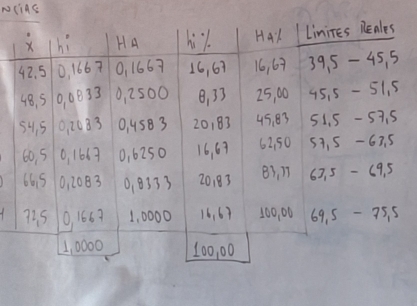 NCIAS
ẋ hi HA hi% HA% LIMITES REALES
42,5 0,1667 0,1667 16,67 16,67 39,5 - 45,5
48,5 0,0833 0,2500 8,33 25,00 45,5 - 51,5
54,5 0,2083 0,4583 20,83 45,83 51,5 - 57,5
60,5 0,1667 0,6250 16,67 62,50 57,5 - 63,5
66,5 0,2083 0,8333 20,83 83,33 63,5 - 69,5
72,5 0,1667 1,0000 16,67 100,00 69,5 - 75,5
1,0000 100,00